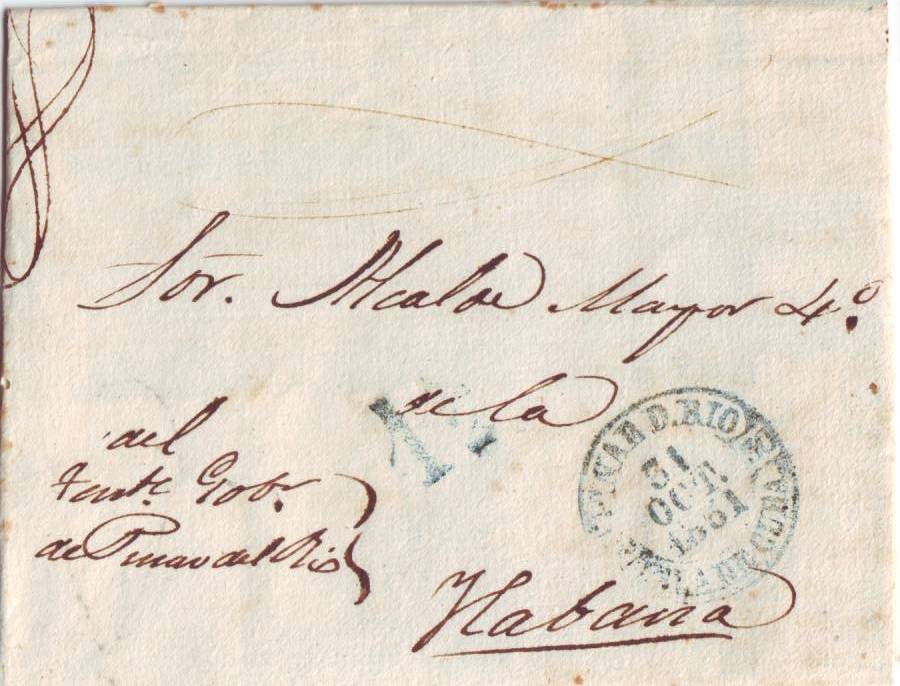 Sor. Alcalde Mayor 4.º
de la
del
Tente. Gobr.
de Pinar del Rio
Habana
NAR D. RIO
31
OCT.
1851